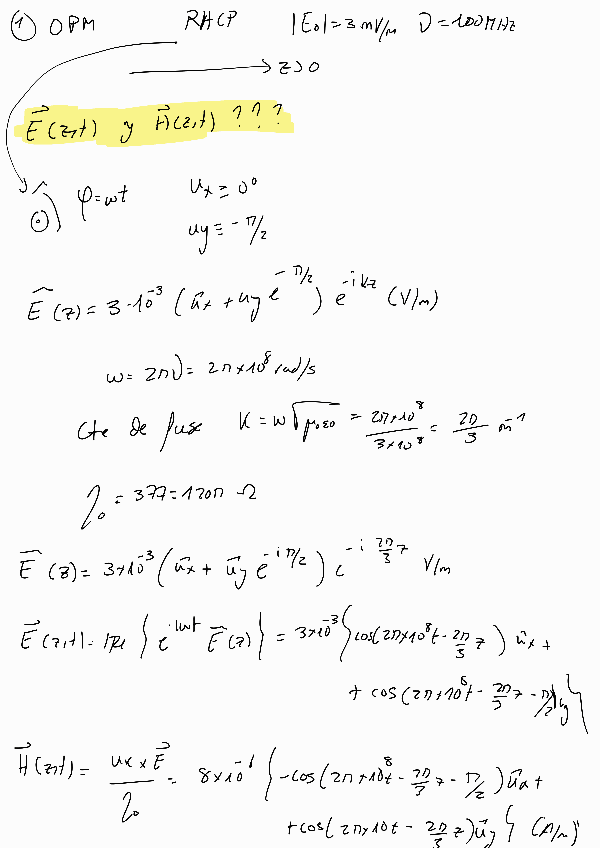 ① OPM RHCP |E₀|=3 mV/m ν=100MHz
z>0
E⃗(z,t) y H⃗(z,t) ???
φ=wt ux = 0°
uy = -π/2
Ê(z)= 3·10⁻³ (u⃗x + uy e^-π/2) e^-ikz (V/m)
w= 2πν= 2π×10⁸ rad/s
Cte de fase K = w√μ₀ε₀ = 2π×10⁸/3×10⁸ = 2π/3 m⁻¹
η₀ = 377=120π Ω
Ê(z)= 3×10⁻³ (u⃗x + u⃗y e^-iπ/2) e^-i 2π/3 z V/m
E⃗(z,t)= Re { e^iwt Ê(z) } = 3×10⁻³ { cos(2π×10⁸t - 2π/3 z) u⃗x +
+ cos(2π×10⁸t - 2π/3 z - π/2) u⃗y }
H⃗(z,t)= uk × E⃗/η₀ = 8×10⁻⁶ { -cos(2π×10⁸t - 2π/3 z - π/2) u⃗x +
+cos(2π×10t - 2π/3 z) u⃗y } (A/m)